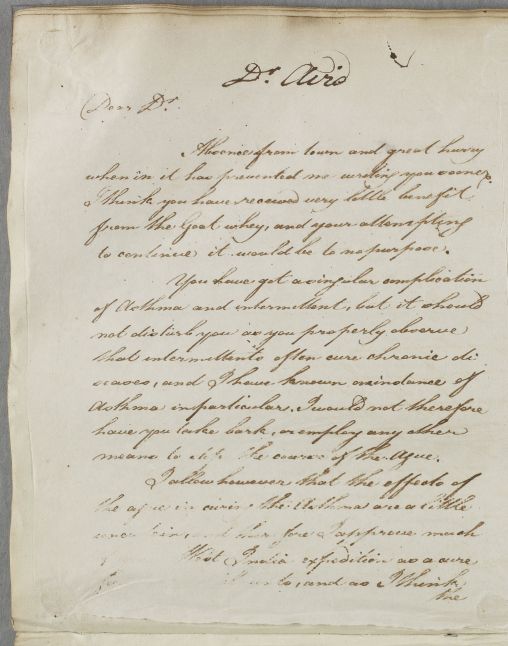 Dr Aird
Dear Dr
Absence from town and great hurry
when in it has prevented me writing you sooner.
I think you have received very little benefit
from the Goat whey, and your attempting
to continue it would be to no purpose.
You have got a singular complication
of Asthma and intermittent, but it should
not disturb you as you properly observe
that intermittents often cure chronic di
seases, and I have known an instance of
Asthma in particular, I would not therefore
have you take bark, or employ any other
means to stop the course of the Ague.
I allow however that the effects of
the ague in curing the Asthma are a little
uncertain, and therefore I approve much
West India expedition as a cure
to, and as I think
the